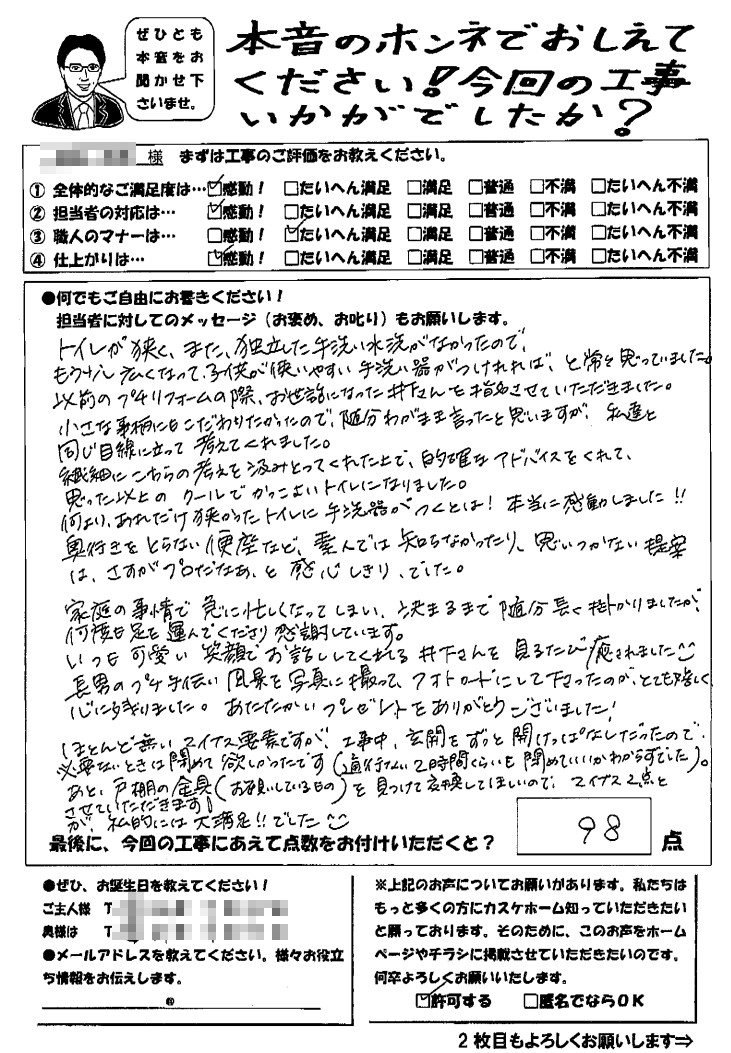 ぜひとも
本音をお
聞かせ下
さいませ。
本音のホンネでおしえて
ください！今回の工事
いかがでしたか？
様 まずは工事のご評価をお教えください。
① 全体的なご満足度は… ☑感動！ □たいへん満足 □満足 □普通 □不満 □たいへん不満
② 担当者の対応は… ☑感動！ □たいへん満足 □満足 □普通 □不満 □たいへん不満
③ 職人のマナーは… □感動！ ☑たいへん満足 □満足 □普通 □不満 □たいへん不満
④ 仕上がりは… ☑感動！ □たいへん満足 □満足 □普通 □不満 □たいへん不満
●何でもご自由にお書きください！
担当者に対してのメッセージ（お褒め、お叱り）もお願いします。
トイレが狭く、また、独立した手洗い水洗がなかったので、
もう少し広くなって、子供が使いやすい手洗い器がつけれれば、と常々思っていました。
以前のプチリフォームの際、お世話になった井下さんを指名させていただきました。
小さな事柄にもこだわりたかったので、随分わがまま言ったと思いますが、私達と
同じ目線に立って考えてくれました。
繊細にこちらの考えを汲みとってくれた上で、的確なアドバイスをくれて、
思った以上のクールでかっこよいトイレになりました。
何より、あれだけ狭かったトイレに手洗器がつくとは！本当に感動しました!!
奥行きをとらない便座など、素人では知らなかったり、思いつかない提案
は、さすがプロだなぁ、と感心しきり、でした。
家庭の事情で急に忙しくなってしまい、決まるまで随分長く掛かりましたが、
何度も足を運んでくださり感謝しています。
いつも可愛い笑顔でお話ししてくれる井下さんを見るたび癒されました
長男のプチ手伝い風景を写真に撮って、フォトカードにして下さったのが、とても嬉しく
心に残りました。あたたかいプレゼントをありがとうございました！
ほとんど無いマイナス要素ですが、工事中、玄関をずっと開けっぱなしだったので
必要ないときは閉めて欲しかったです（通行ない2時間くらいも閉めていいかわからずでした）。
あと、戸棚の金具（お願いしているもの）を見つけて交換してほしいので、マイナス2点と
させていただきます！
が、私的には大満足!!でした
最後に、今回の工事にあえて点数をお付けいただくと？ 98 点
●ぜひ、お誕生日を教えてください！
ご主人様 T
奥様は T
●メールアドレスを教えてください。様々お役立
ち情報をお伝えします。
@
※上記のお声についてお願いがあります。私たちは
もっと多くの方にカスケホーム知っていただきたい
と願っております。そのために、このお声をホーム
ページやチラシに掲載させていただきたいのです。
何卒よろしくお願いいたします。
☑許可する □匿名でならOK
2枚目もよろしくお願いします⇒